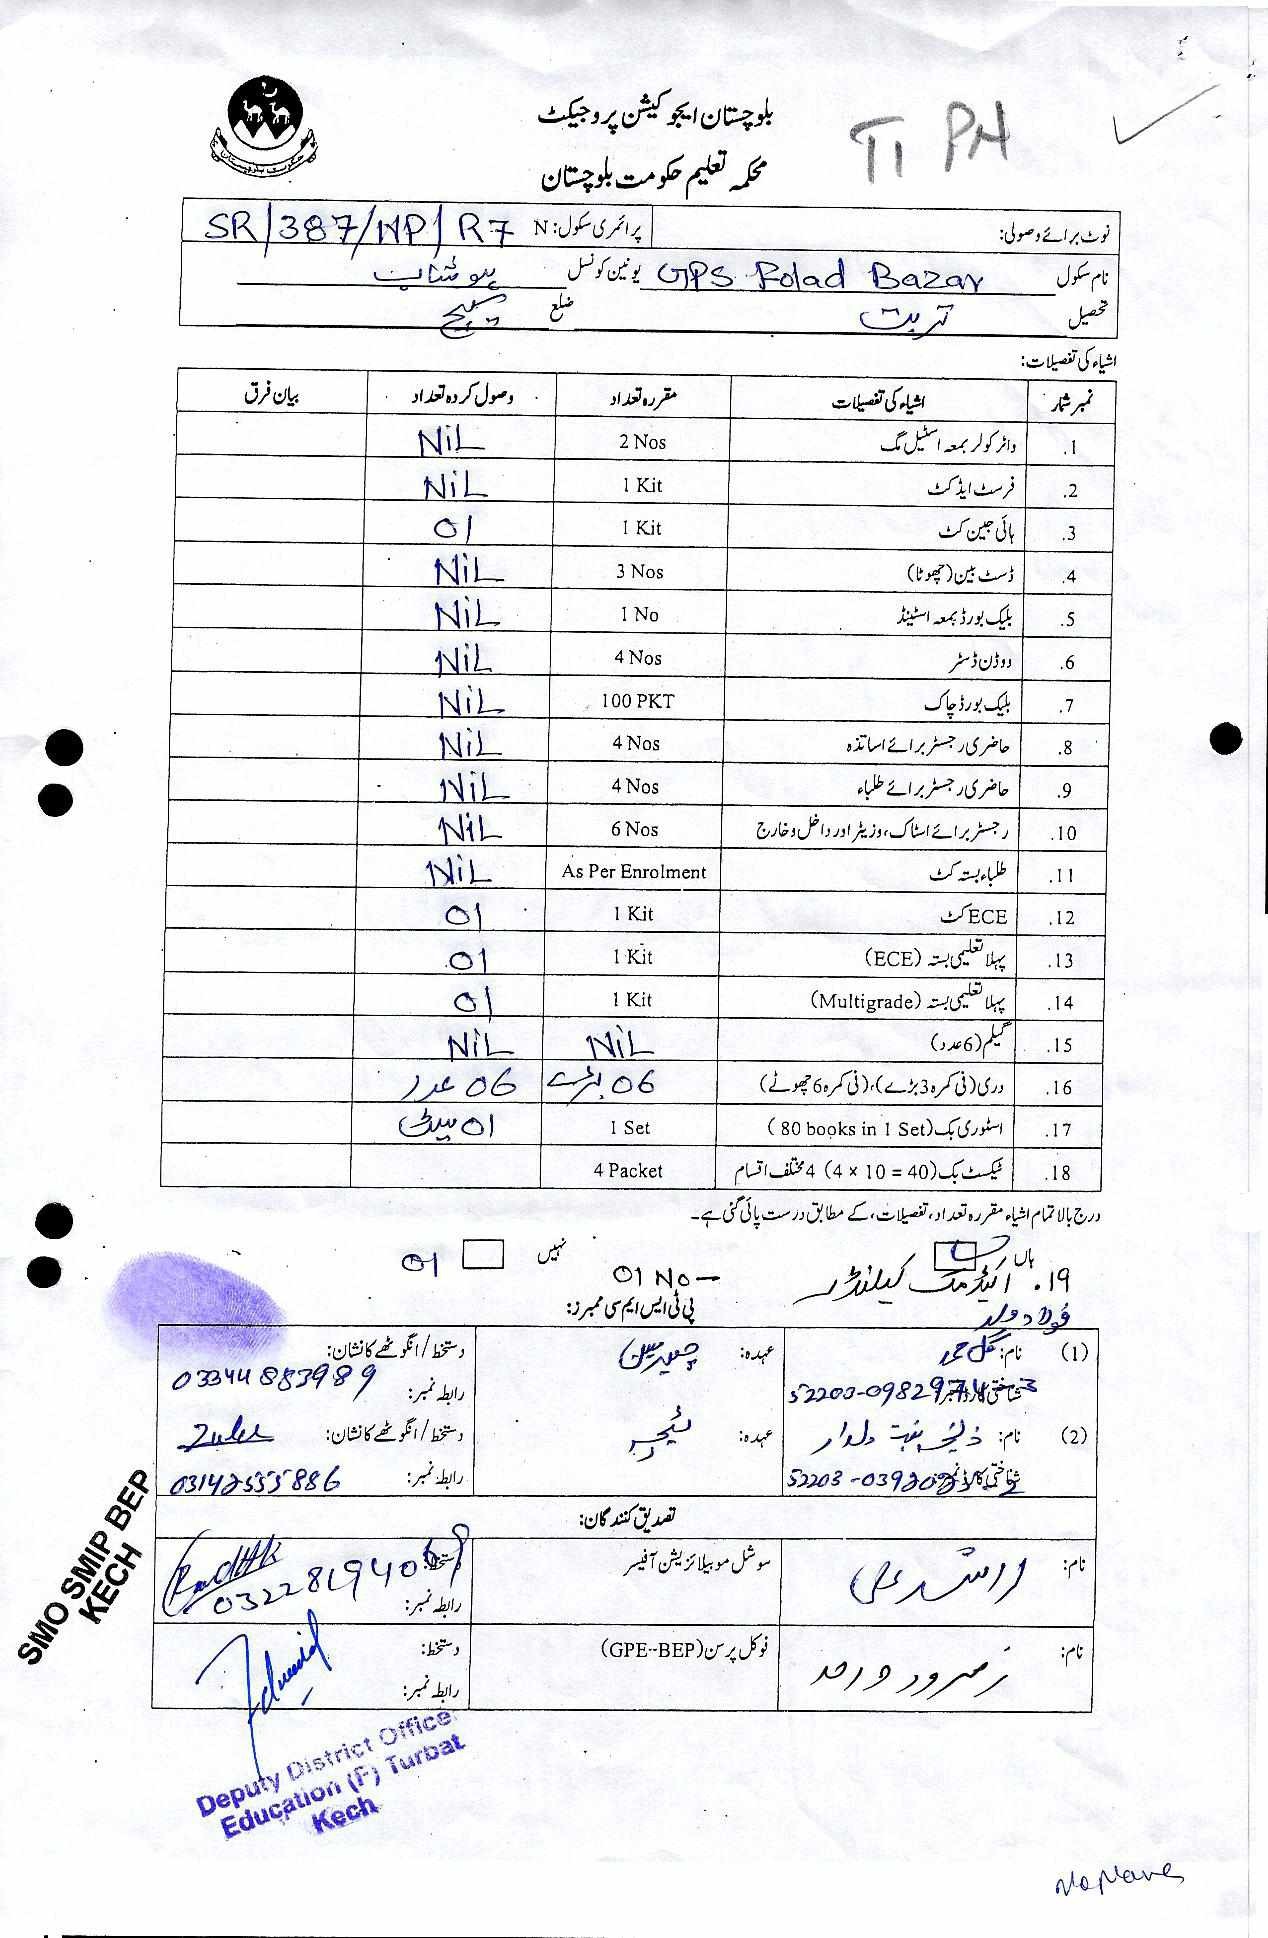 بلوچستان ایجوکیشن پروجیکٹ
محکمہ تعلیم حکومت بلوچستان
حکومت بلوچستان
TI PH
نوٹ برائے وصولی: پرائمری سکول: N SR/387/NP/R7
نام سکول GPS Folad Bazar یونین کونسل
تحصیل تربت ضلع کیچ
اشیاء کی تفصیلات:
نمبر شمار اشیاء کی تفصیلات مقررہ تعداد وصول کردہ تعداد بیان فرق
1. واٹر کولر بمعہ اسٹیل مگ 2 Nos NiL
2. فرسٹ ایڈ کٹ 1 Kit NiL
3. ہائی جین کٹ 1 Kit 01
4. ڈسٹ بین (چھوٹا) 3 Nos NiL
5. بلیک بورڈ بمعہ اسٹینڈ 1 No NiL
6. ووڈن ڈسٹر 4 Nos NiL
7. بلیک بورڈ چاک 100 PKT NiL
8. حاضری رجسٹر برائے اساتذہ 4 Nos NiL
9. حاضری رجسٹر برائے طلباء 4 Nos NiL
10. رجسٹر برائے اسٹاک، وزیٹر اور داخل و خارج 6 Nos NiL
11. طلباء بستہ کٹ As Per Enrolment NiL
12. ECE کٹ 1 Kit 01
13. پہلا تعلیمی بستہ (ECE) 1 Kit 01
14. پہلا تعلیمی بستہ (Multigrade) 1 Kit 01
15. گیلم (6 عدد) NiL NiL
16. دری (فی کمرہ 3 بڑے)، (فی کمرہ 6 چھوٹے) 06 بڑے 06 عدد
17. اسٹوری بک (80 books in 1 Set) 1 Set 01 پیٹی
18. ٹیکسٹ بک (4 × 10 = 40) 4 مختلف اقسام 4 Packet
درج بالا تمام اشیاء مقررہ تعداد، تفصیلات، کے مطابق درست پائی گئی ہے۔
ہاں نہیں
19. کیلنڈر 01 No 01
پی ٹی ایس ایم سی ممبرز:
(1) نام: گل عہدہ: چیئرمین دستخط / انگوٹھے کا نشان:
شناختی کارڈ نمبر: رابطہ نمبر: 03344883989
(2) نام: بنت دلدار عہدہ: ٹیچر دستخط / انگوٹھے کا نشان:
شناختی کارڈ نمبر: رابطہ نمبر: 03142555886
تصدیق کنندگان:
نام: سوشل موبیلائزیشن آفیسر دستخط:
رابطہ نمبر:
نام: فوکل پرسن (GPE-BEP) دستخط:
رابطہ نمبر:
SMO SMIP BEP
KECH
Deputy District Office
Education (F) Turbat
Kech